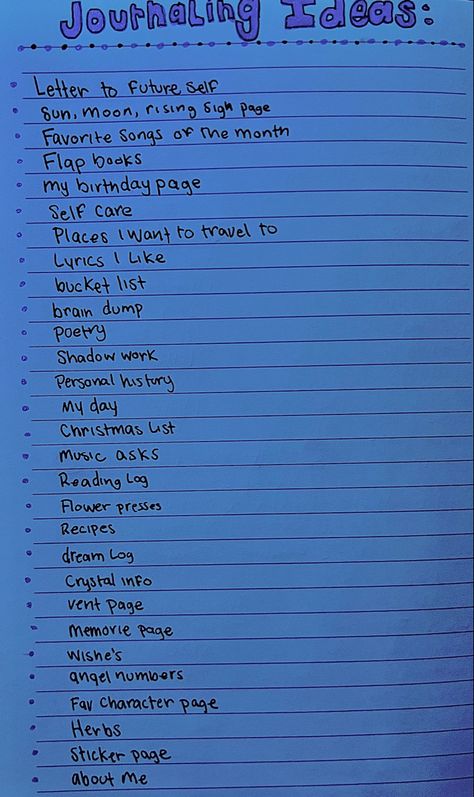 Journaling Ideas:
Letter to Future Self
Sun, moon, rising sign page
Favorite songs of the month
Flap books
my birthday page
Self care
Places I want to travel to
Lyrics I Like
bucket list
brain dump
Poetry
Shadow work
Personal history
My day
Christmas List
Music asks
Reading Log
Flower presses
Recipes
dream Log
Crystal info
vent page
Memorie page
Wishe's
angel numbers
Fav Character page
Herbs
Sticker page
about me